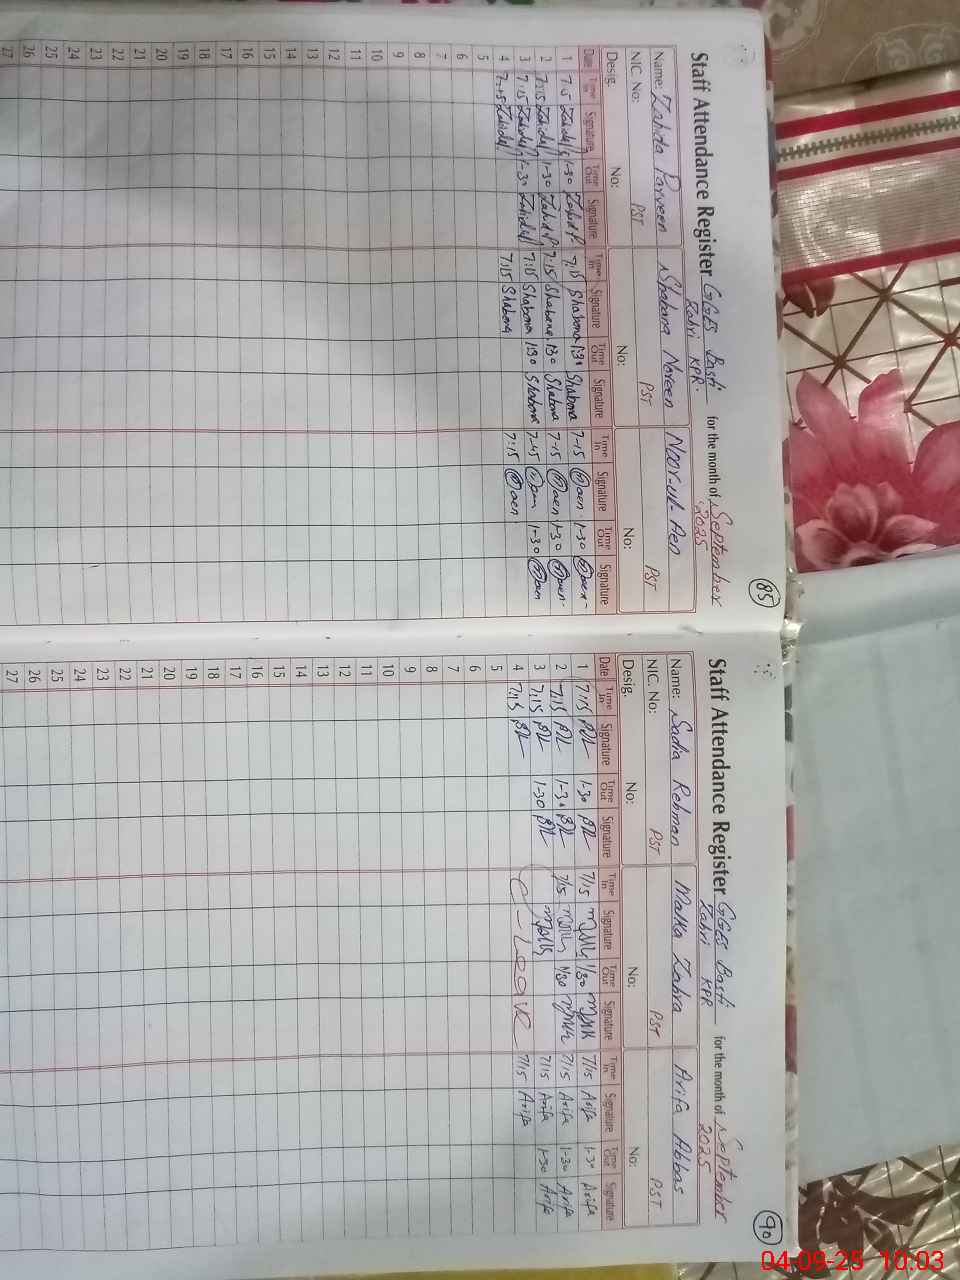 85
Staff Attendance Register GGES Basti for the month of September
Zahri KPR. 2025
Name: Zahida Parveen Shabana Noreen Noor-ul-Aen
NIC. No: PST PST PST
Desig. No: No: No:
Date Time In Signature Time Out Signature Time In Signature Time Out Signature Time In Signature Time Out Signature
1 7:15 1-30 7:15 Shabana 1:30 Shabana 7-15 aen 1-30 aen
2 7:15 1-30 7:15 Shabana 1:30 Shabana 7-15 aen 1-30 aen
3 7:15 1-30 7:15 Shabana 1:30 Shabana 7-45 aen 1-30 aen
4 7-15 7:15 Shabana 7:15 aen
5
6
7
8
9
10
11
12
13
14
15
16
17
18
19
20
21
22
23
24
25
26
27
90
Staff Attendance Register GGES Basti for the month of September
Zahri KPR 2025
Name: Sadia Rehman Malka Zahra Arifa Abbas
NIC. No: PST PST PST
Desig. No: No: No:
Date Time In Signature Time Out Signature Time In Signature Time Out Signature Time In Signature Time Out Signature
1 7:15 1-30 7/15 1/30 7/15 Arifa 1-30 Arifa
2 7:15 1-30 7/15 1/30 7/15 Arifa 1-30 Arifa
3 7:15 1-30 7/15 Arifa 1-30 Arifa
4 7:15 C-Leave 7/15 Arifa
5
6
7
8
9
10
11
12
13
14
15
16
17
18
19
20
21
22
23
24
25
26
27
04-09-25 10:03